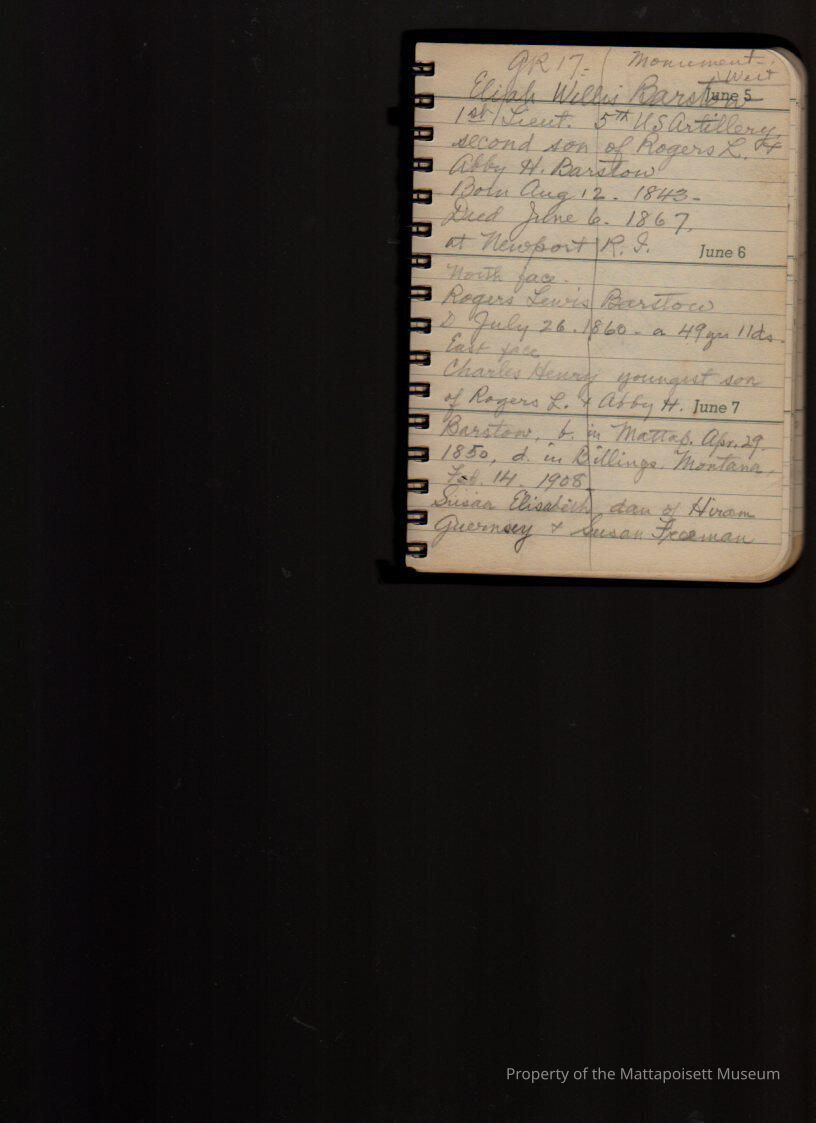 GR 17- Monument-
West
Elijah Willis Barstow June 5
1st Lieut. 5th US Artillery,
second son of Rogers L. &
Abby H. Barstow
Born Aug 12. 1843-
Died June 6. 1867.
at Newport R. I. June 6
North face-
Rogers Lewis Barstow
D July 26. 1860- a 49 yrs 11ds.
East face
Charles Henry youngest son
of Rogers L. & Abby H. June 7
Barstow, b. in Mattap. Apr. 29.
1850, d. in Billings, Montana,
Feb. 14. 1908
Susan Elisabeth, dau of Hiram
Guernsey & Susan Freeman
Property of the Mattapoisett Museum